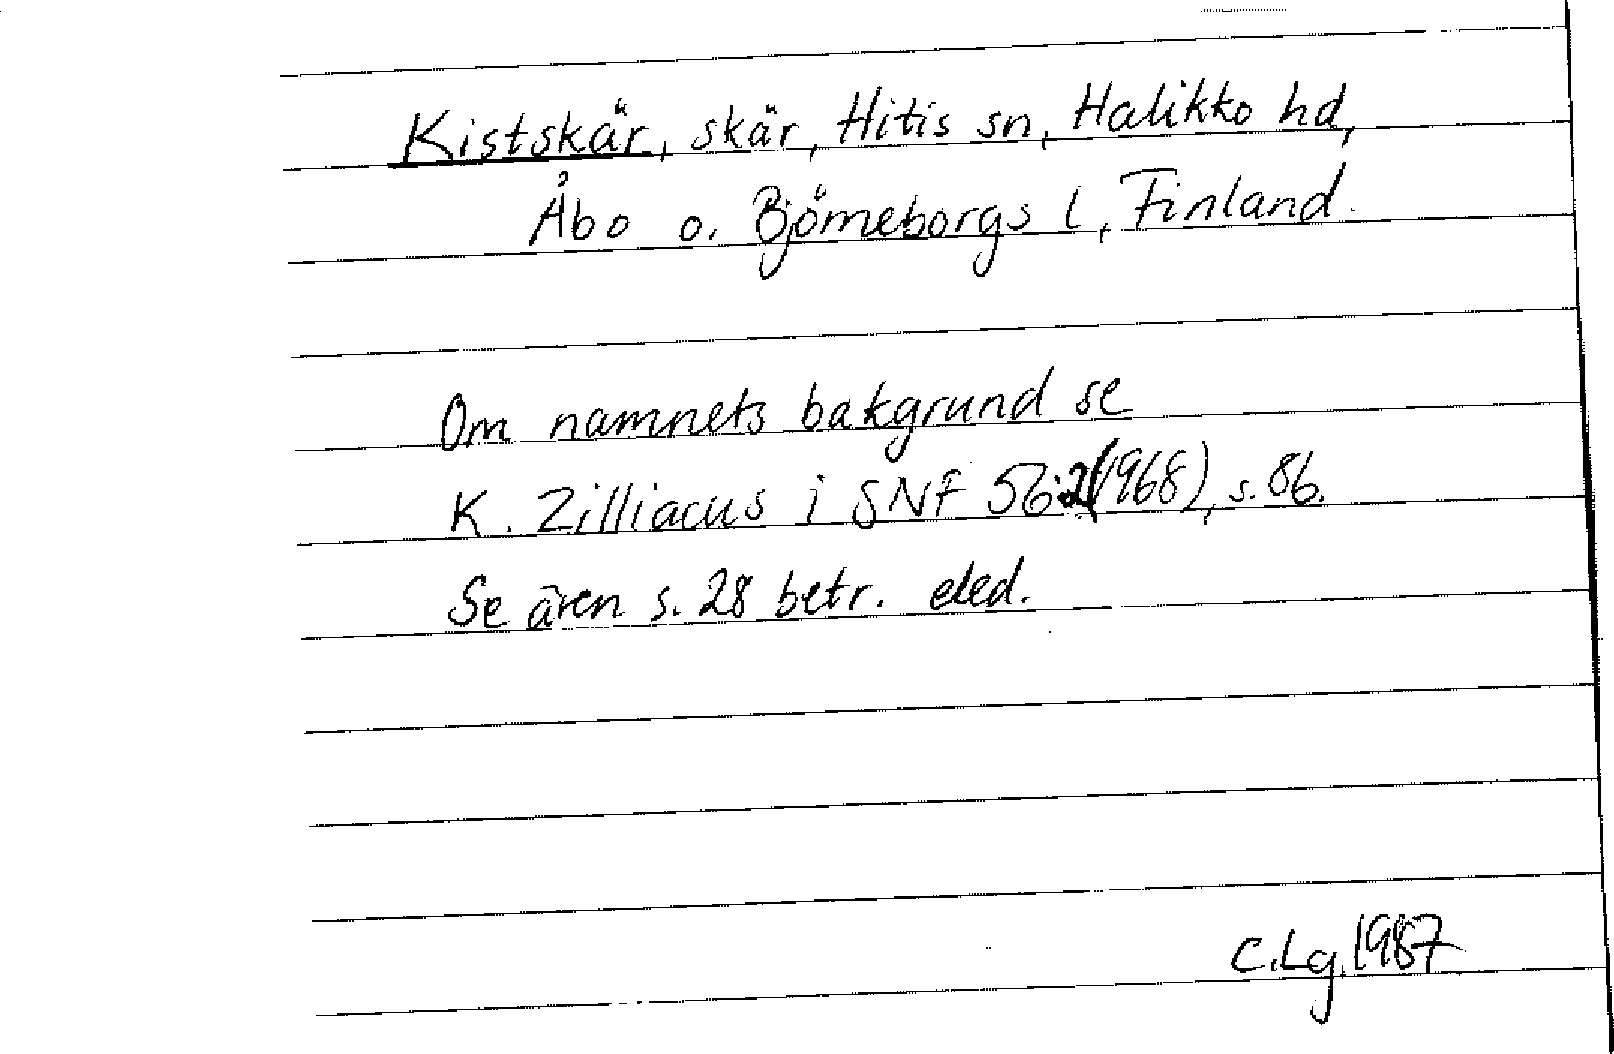 Kistskär, skär, Hitis sn, Halikko hd,
Åbo o. Björneborgs l, Finland.
Om namnets bakgrund se
K. Zilliacus i SNF 56:2(1968), s. 86.
Se även s. 28 betr. eled.
C.Lg.1987